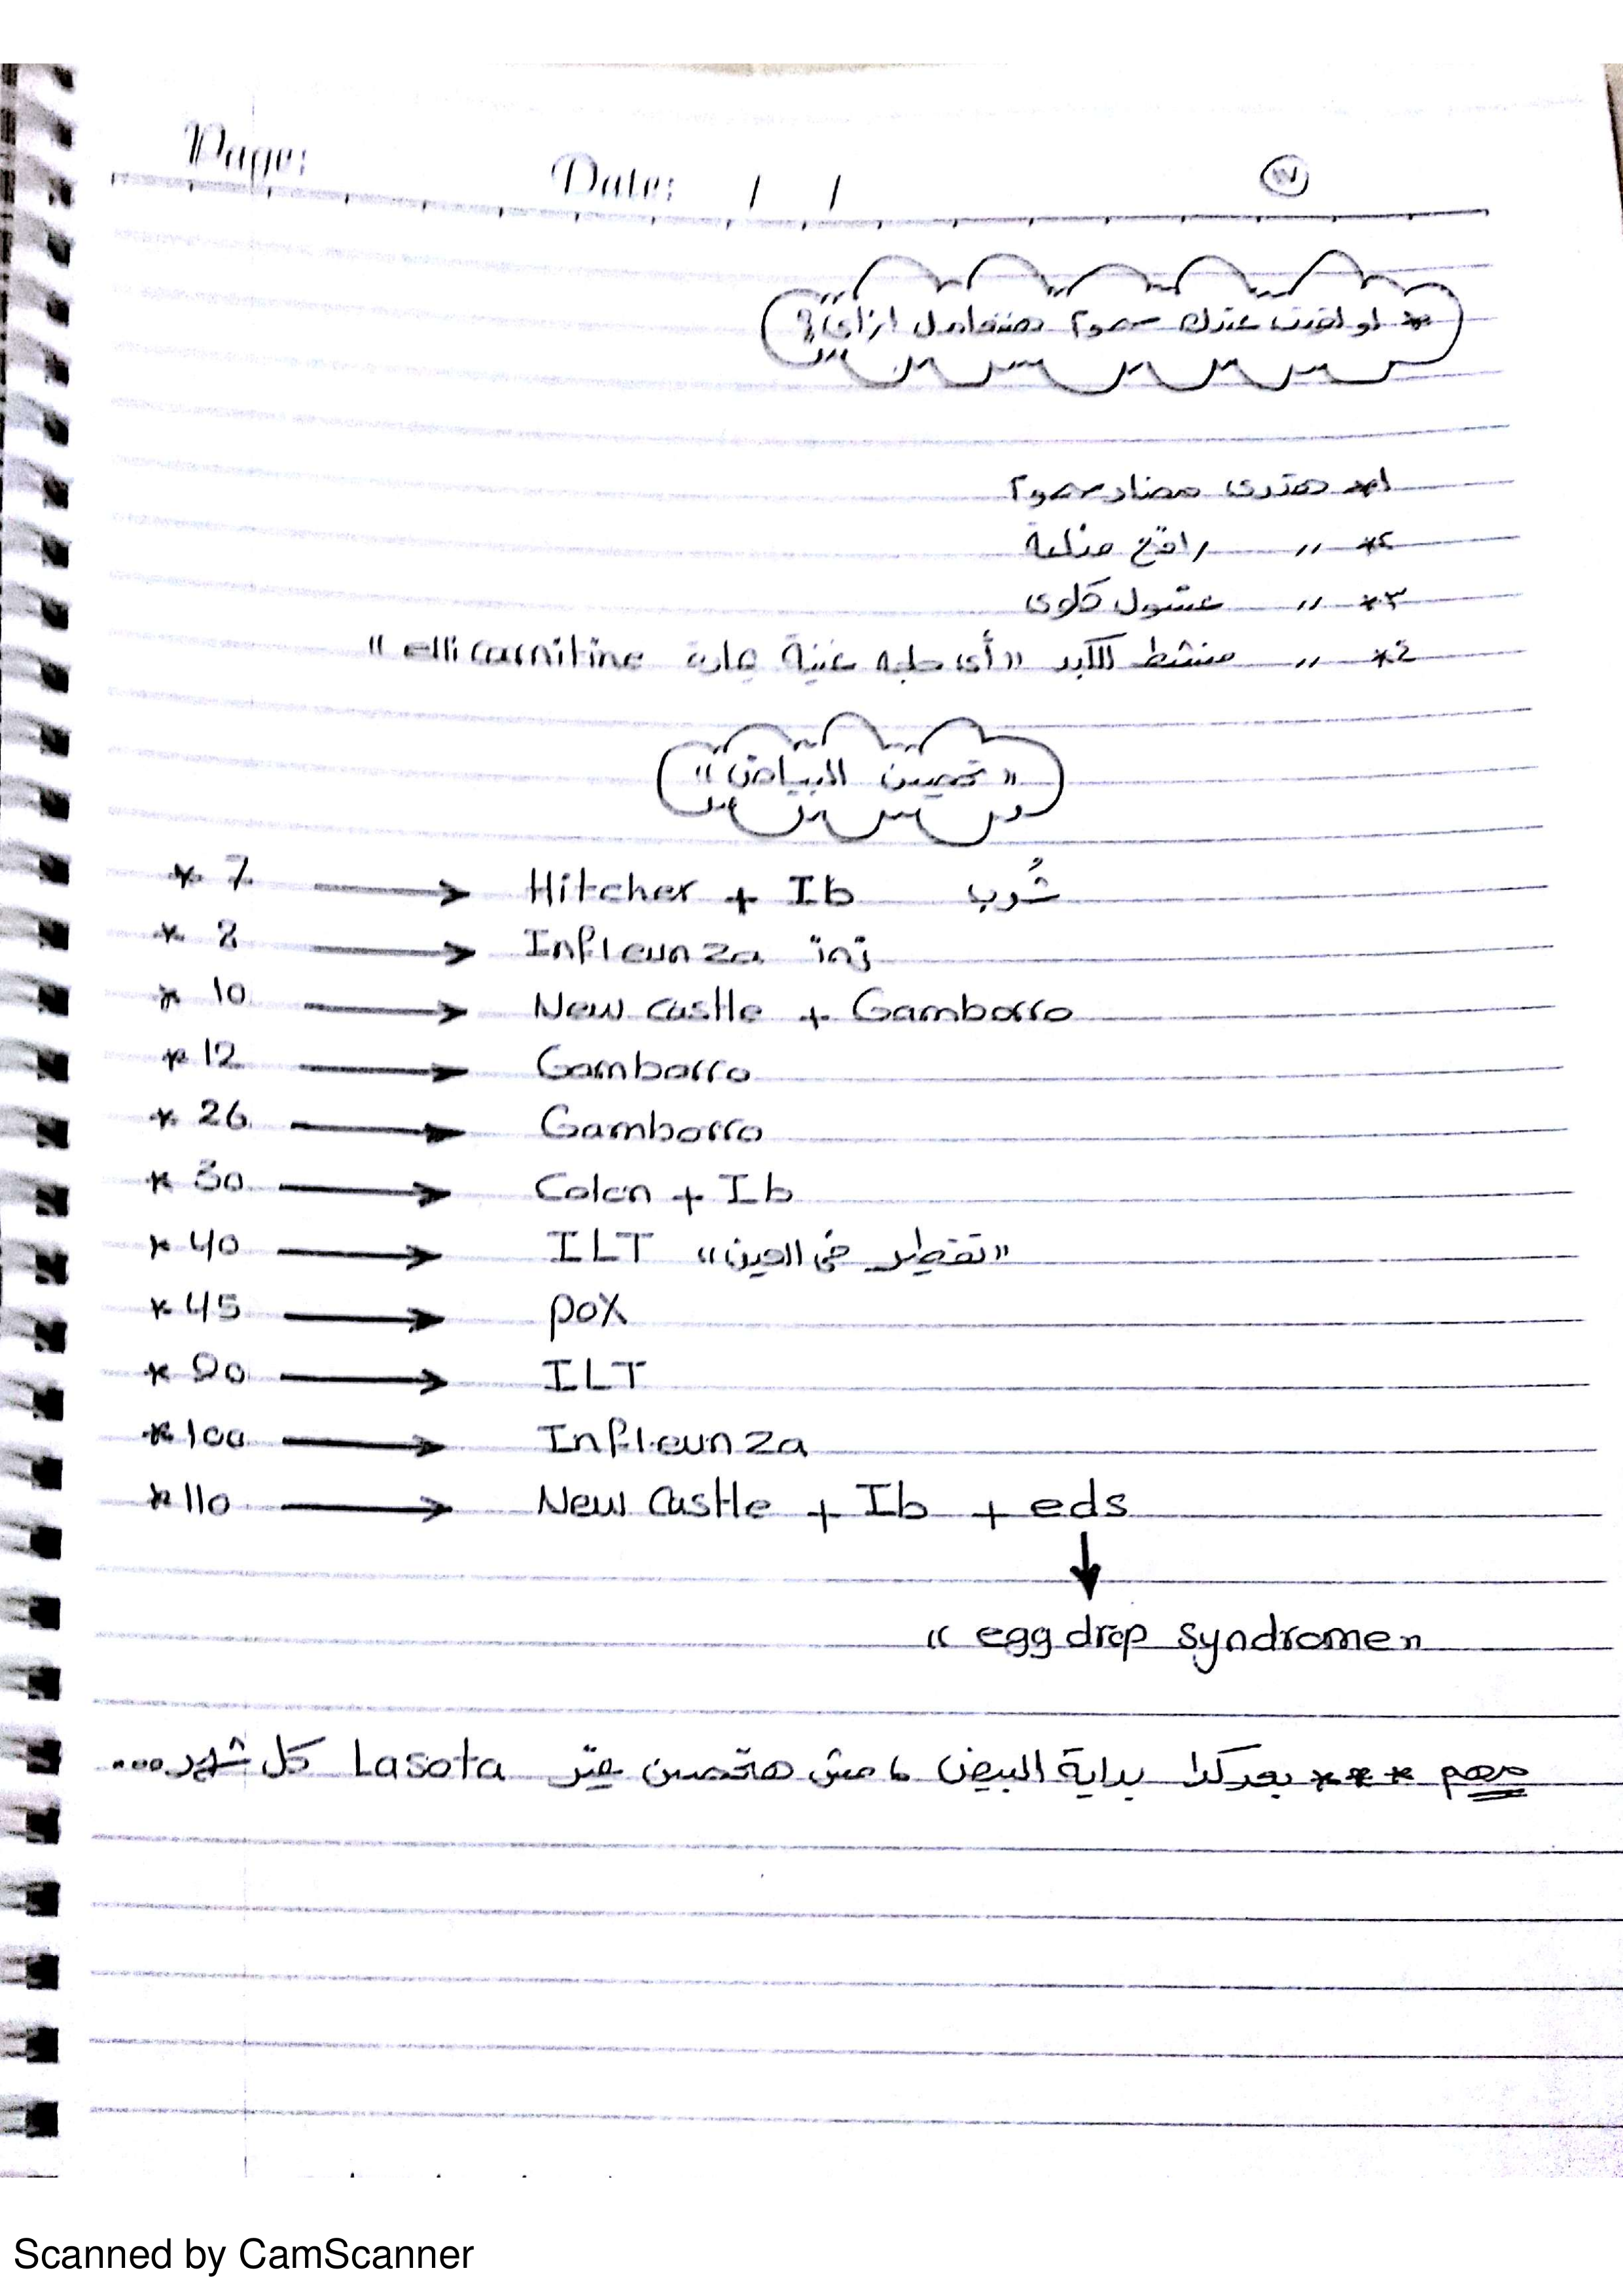 Page:
Date: / /
١٧
* لو لقيت عندك سموم هنتعامل ازاى؟
١* هتدى مضاد سموم
٢* ,, رافع مناعة
٣* ,, غسول كلوى
٤* ,, منشط للكبد "أى حاجه غنية بمادة elli carnitine"
"تحصين البياض"
* 7 → Hitcher + Ib شُرب
* 8 → Infleunza inj
* 10 → New castle + Gamborro
* 12 → Gamborro
* 26 → Gamborro
* 30 → Colon + Ib
* 40 → ILT "تقطير فى العين"
* 45 → pox
* 90 → ILT
* 100 → Infleunza
* 110 → New Castle + Ib + eds
↓
"egg drop syndrome"
مهم *** بعد كدا بداية البيض ، مش هتحصن غير Lasota كل شهر...
Scanned by CamScanner